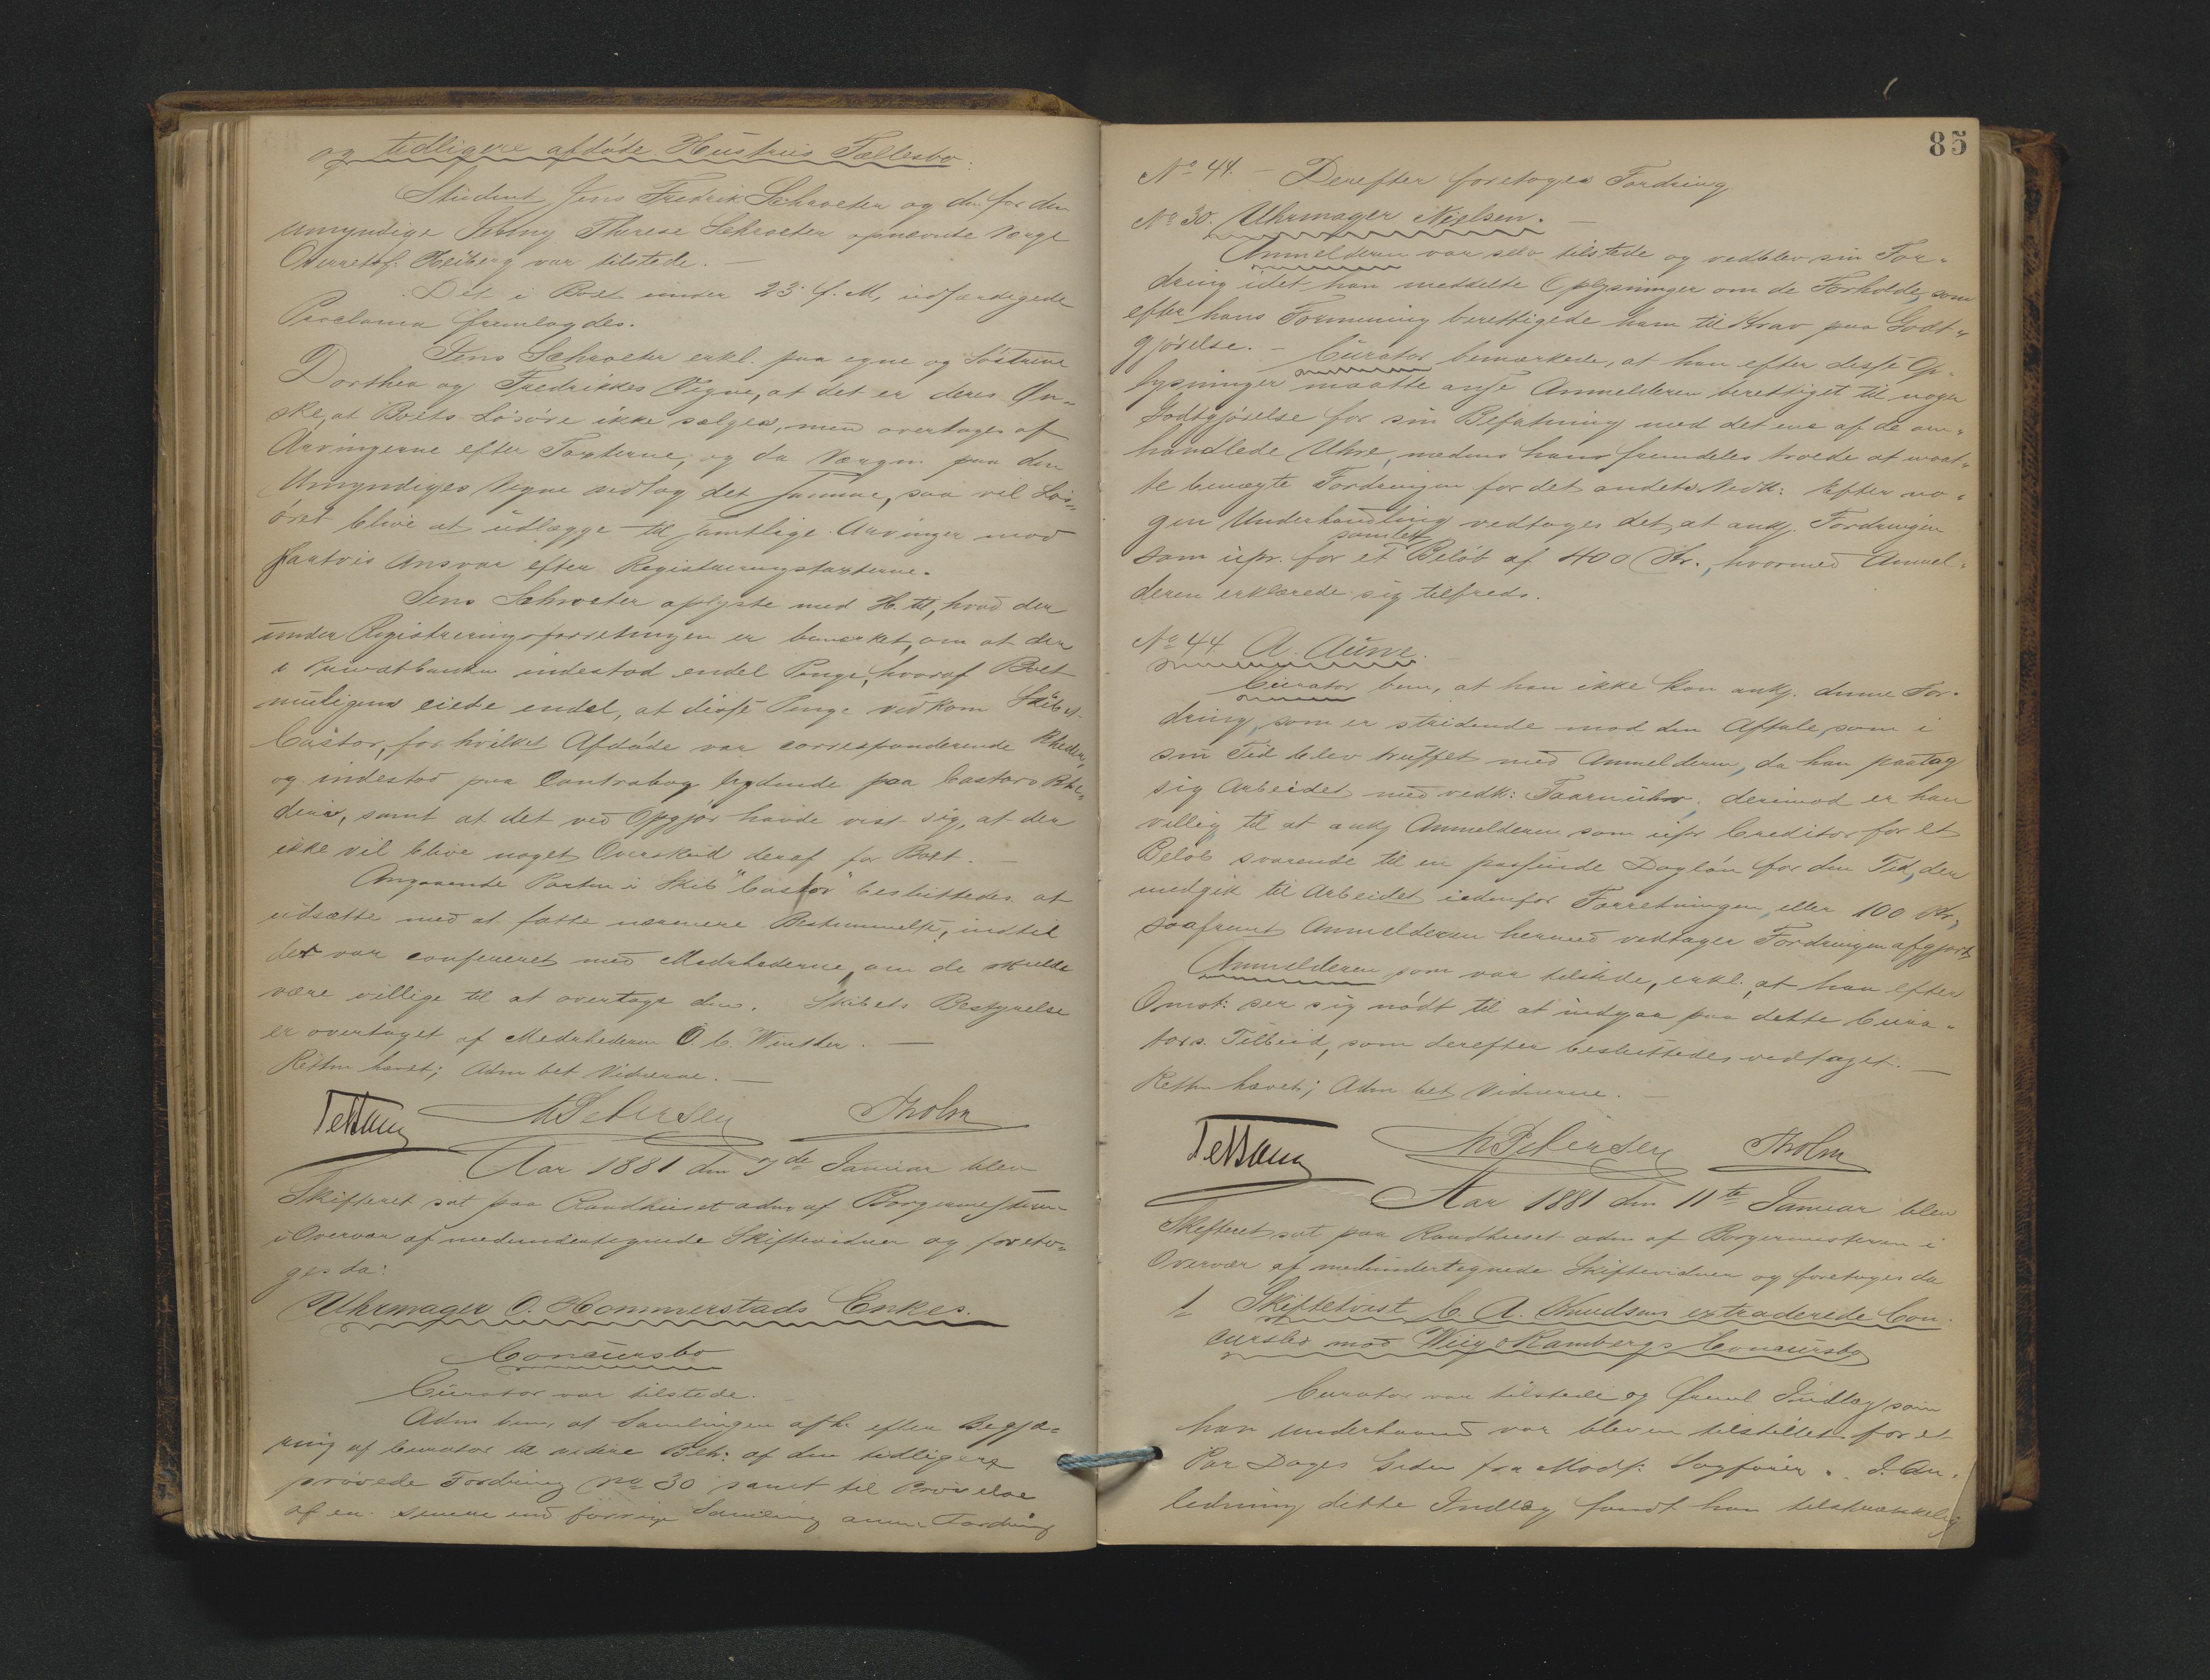 og tidligere afdøde Hustrus Fællesbo.
Student Jens Fredrik Schroeter og den for den
umyndige Jenny Therese Schroeter opnævnte Værge
Overretsf: Heiberg var tilstede. —
Det i Boet under 23 f. M, udfærdigede
Proclama fremlagdes.
Jens Schroeter erkl. paa egne og Søstrene
Dorthea og Fredrikkes Vegne, at det er deres Øn-
ske, at Boets Løsøre ikke sælges, men overtages af
Arvingerne efter Taxterne, og da Værgen paa den
Umyndiges Vegne vedtog det samme, saa vil Løs-
øret blive at udlægge til samtlige Arvinger mod
partvis Ansvar efter Registreringstaxterne.
Jens Schroeter oplyste med H. til, hvad der
under Registreringsforretningen er bemærket, om at der
i Privatbanken indestod endel Penge, hvoraf Boet
muligens eiede endel, at disse Penge vedkom Skibet
Castor, for hvilket Afdøde var corresponderende Rheder,
og indestod paa Contrabog lydende paa Castors Rhe-
deri, samt at det ved Opgjør havde vist sig, at der
ikke vil blive noget Overskud deraf for Boet. —
Angaaende Parten i Skib "Castor" besluttedes at
udsætte med at fatte nærmere Bestemmelse, indtil
det var confereret med Medrhederne, om de skulde
være villige til at overtage den. Skibets Bestyrelse
er overtaget af Medrhederen O. C. Winther. —
Retten hævet; Adm bet Vidnerne. —
MPetersen Tholm
Aar 1881 den 7de Januar blev
Skifteret sat paa Raadhuset adm af Borgermesteren
i Overvær af medundertegnede Skiftevidner og foreto-
ges da:
Uhrmager O. Hommerstads Enkes
Concursbo
Curator var tilstede.
Adm bem, at Samlingen afh: efter Begjæ-
ring af Curator til videre Beh: af den tidligere
prøvede Fordring No 30 samt til Prøvelse
af en senere end forrige Samling anm. Fordring
85
No 44. — Derefter foretoges Fordring
No 30. Uhrmager Nielsen. —
Anmelderen var selv tilstede og vedblev sin For-
dring idet han meddelte Oplysninger om de Forholde, som
efter hans Formening berettigede ham til Krav paa Godt-
gjørelse. — Curator bemærkede, at han efter disse Op-
lysninger maatte anse Anmelderen berettiget til nogen
Godtgjørelse for sin Befatning med det ene af de om-
handlede Uhre, medens han fremdeles troede at maat-
te benægte Fordringen for det andets Vedk: Efter no-
gen Underhandling vedtoges det, at ankj. Fordringen
samlet
som upr. for et Beløb af 400 Kr., hvormed Anmel-
deren erklærede sig tilfreds.
No 44 A. Aune.
Curator bem, at han ikke kan ankj. denne For-
dring, som er stridende mod den Aftale, som i
sin Tid blev truffet med Anmelderen, da han paatog
sig Arbeidet med vedk: Taarnuhr; derimod er han
villig til at ankj Anmelderen som upr Creditor for et
Beløb svarende til en passende Dagløn for den Tid, der
medgik til Arbeidet udenfor Forretningen, eller 100 Kr,
saafremt Anmelderen hermed vedtager Fordringen afgjort.
Anmelderen som var tilstede, erkl. at han efter
Omst: ser sig nødt til at indgaa paa dette Cura-
tors Tilbud, som derefter besluttedes vedtaget. —
Retten hævet; Adm bet Vidnerne. —
MPetersen Tholm
Aar 1881 den 11te Januar blev
Skifteret sat paa Raadhuset adm af Borgermesteren i
Overvær af medundertegnede Skiftevidner og foretoges da
1 Skiftetvist C. A. Knudsens extraderede Con-
cursbo mod Wiig & Rambergs Concursbo
Curator var tilstede og freml Indlæg, som
han underhaand var bleven tilstillet for et
Par Dage siden fra Modp: Sagfører. I An-
ledning dette Indlæg fandt han tilstrækkelig